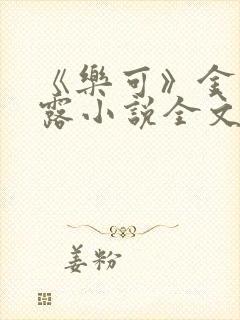 《樂可》金
露小說全文
姜粉